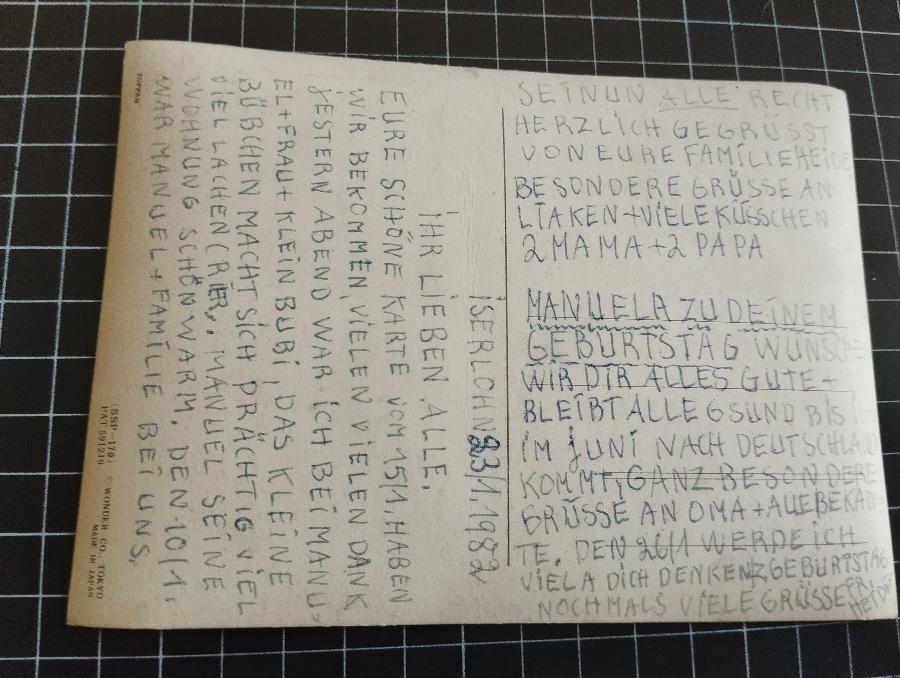 ISERLOHN 23/1.1982
IHR LIEBEN ALLE,
EURE SCHÖNE KARTE VOM 15/1, HABEN
WIR BEKOMMEN, VIELEN VIELEN DANK
JESTERN ABEND WAR ICH BEI MANU
EL+FRAU+KLEIN BUBI, DAS KLEINE
BÜBCHEN MACHT SICH PRÄCHTIG VIEL
VIEL LACHEN ER,. MANUEL SEINE
WOHNUNG SCHÖN WARM. DEN 10/1,
WAR MANUEL+FAMILIE BEI UNS,
SEI NUN ALLE RECHT
HERZLICH GEGRÜSST
VON EURE FAMILIE HEIDE
BESONDERE GRÜSSE AN
LIAKEN+VIELE KÜSSCHEN
2 MAMA+2 PAPA
MANUELA ZU DEINEM
GEBURTSTAG WÜNSCHE
WIR DIR ALLES GUTE+
BLEIBT ALLE GSUND BIS
IM JUNI NACH DEUTSCHLAND
KOMMT, GANZ BESONDERE
GRÜSSE AN OMA+ALLE BEKAN
TE. DEN 26/1 WERDE ICH
VIEL A DICH DENKEN Z GEBURTSTAG
NOCHMALS VIELE GRÜSSE FR. HEIDE
TOPPAN
(SSP-170) © WONDER CO., TOKYO
PAT 591210 MADE IN JAPAN